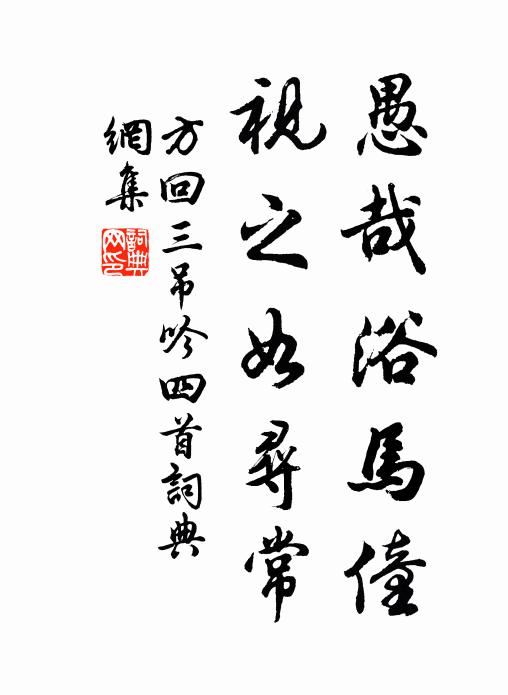 愚哉浴馬僮
視之如尋常
方回三吊吟四首詞典
網集
詞典網印